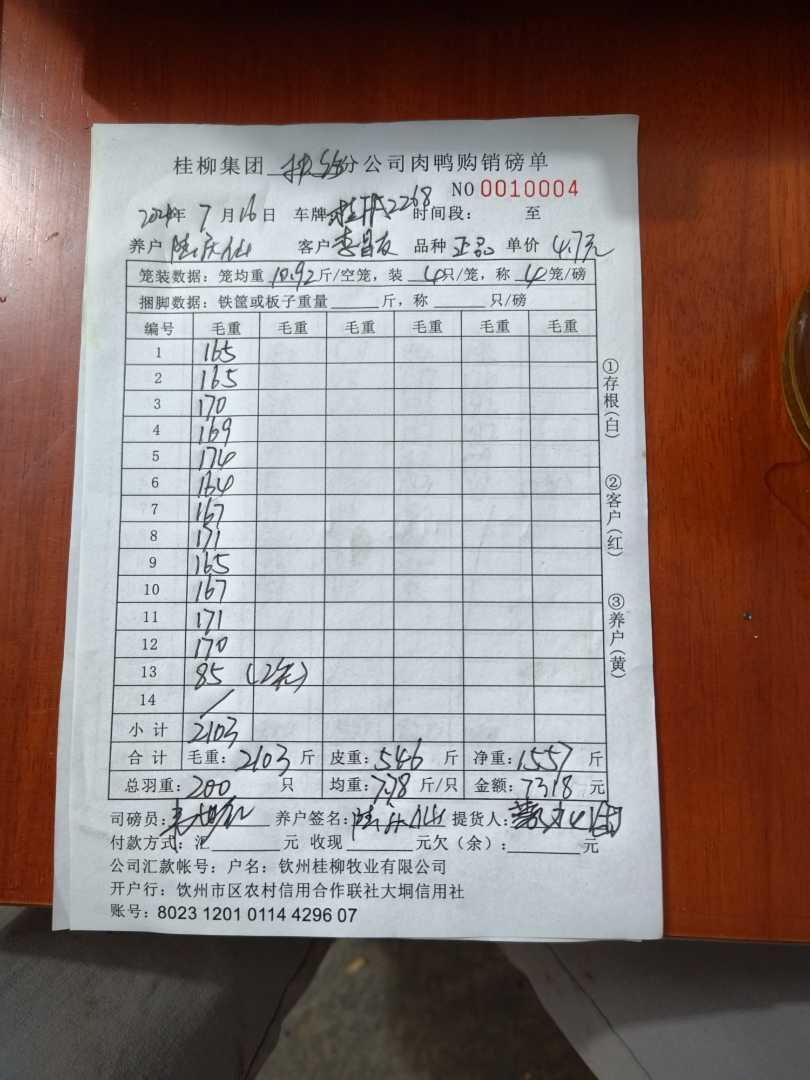 桂柳集团 分公司肉鸭购销磅单
NO 0010004
2024年 7 月 16 日 车牌 2268 时间段： 至
养户 陆庆仙 客户 李昌友 品种 正品 单价 4.7元
笼装数据：笼均重 10.92 斤/空笼，装 4 只/笼，称 4 笼/磅
捆脚数据：铁筐或板子重量____斤，称____只/磅
编号 毛重 毛重 毛重 毛重 毛重 毛重
1 165
2 165
3 170
4 169
5 174
6 164
7 167
8 171
9 165
10 167
11 171
12 170
13 85 (2笼)
14 /
小 计 2103
合 计 毛重：2103 斤 皮重：546 斤 净重：1557 斤
总羽重：200 只 均重：7.78 斤/只 金额：7318 元
司磅员： 养户签名：陆庆仙 提货人：
付款方式：汇____元 收现____元欠（余）：____元
公司汇款帐号：户名：钦州桂柳牧业有限公司
开户行：钦州市区农村信用合作联社大垌信用社
账号：8023 1201 0114 4296 07
①存根(白)
②客户(红)
③养户(黄)